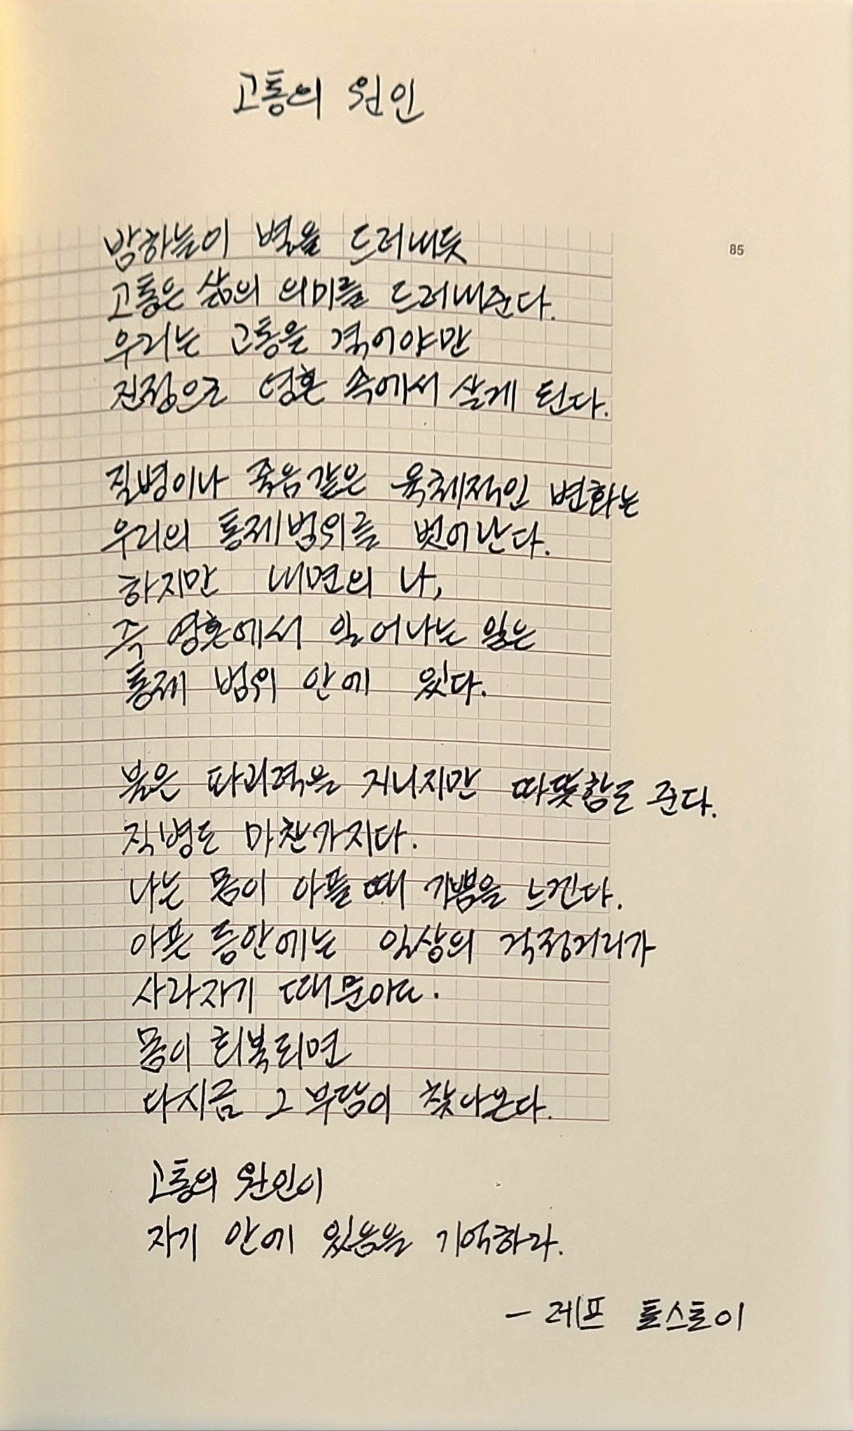 고통의 원인
85
밤하늘이 별을 드러내듯
고통은 삶의 의미를 드러내준다.
우리는 고통을 겪어야만
진정으로 영혼 속에서 살게 된다.
질병이나 죽음같은 육체적인 변화는
우리의 통제범위를 벗어난다.
하지만 내면의 나,
즉 영혼에서 일어나는 일은
통제 범위 안에 있다.
불은 파괴력을 지니지만 따뜻함도 준다.
질병도 마찬가지다.
나는 몸이 아플 때 기쁨을 느낀다.
아픈 동안에는 일상의 걱정거리가
사라지기 때문이다.
몸이 회복되면
다시금 그 부담이 찾아온다.
고통의 원인이
자기 안에 있음을 기억하라.
- 레프 톨스토이